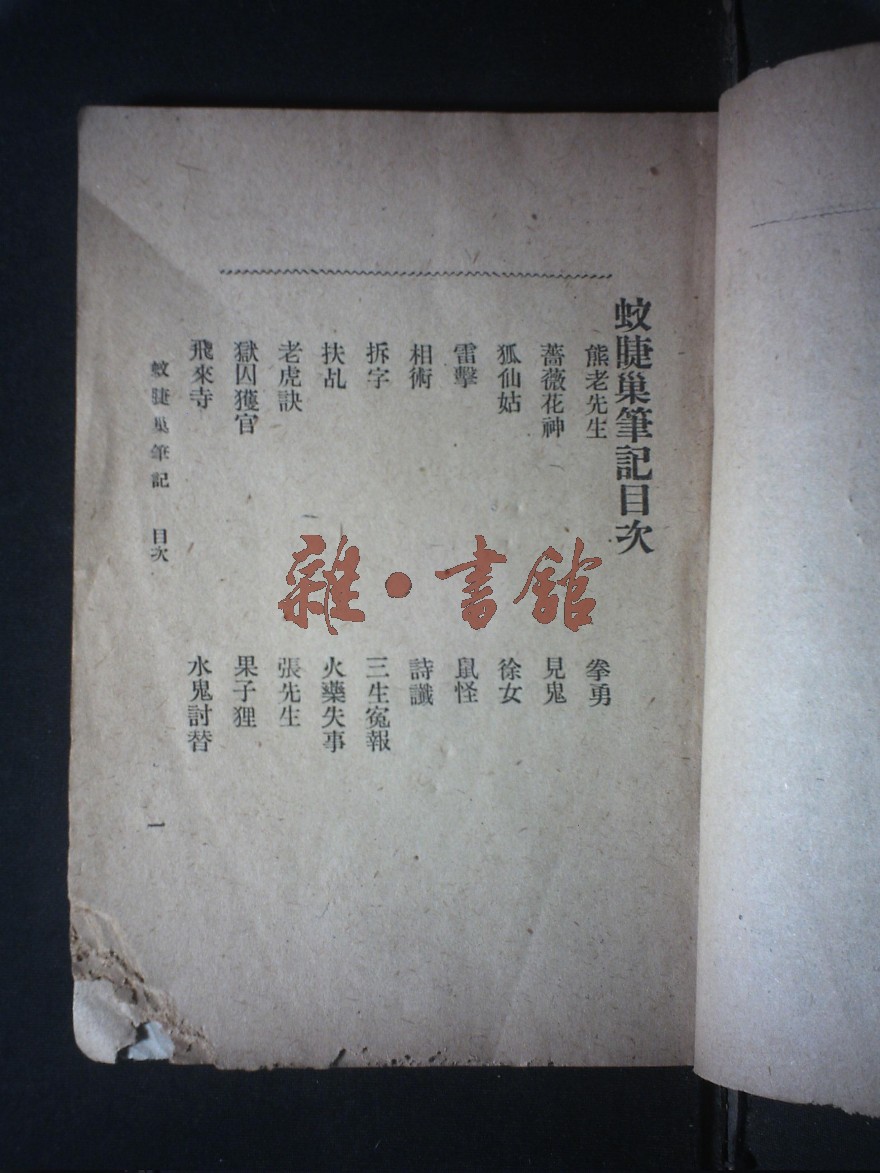 蚊睫巢筆記目次
熊老先生
拳勇
薔薇花神
見鬼
狐仙姑
徐女
雷擊
鼠怪
相術
詩讖
拆字
三生寃報
扶乩
火藥失事
老虎訣
張先生
獄囚獲官
果子狸
飛來寺
水鬼討替
蚊睫巢筆記 目次
一
雜·書館